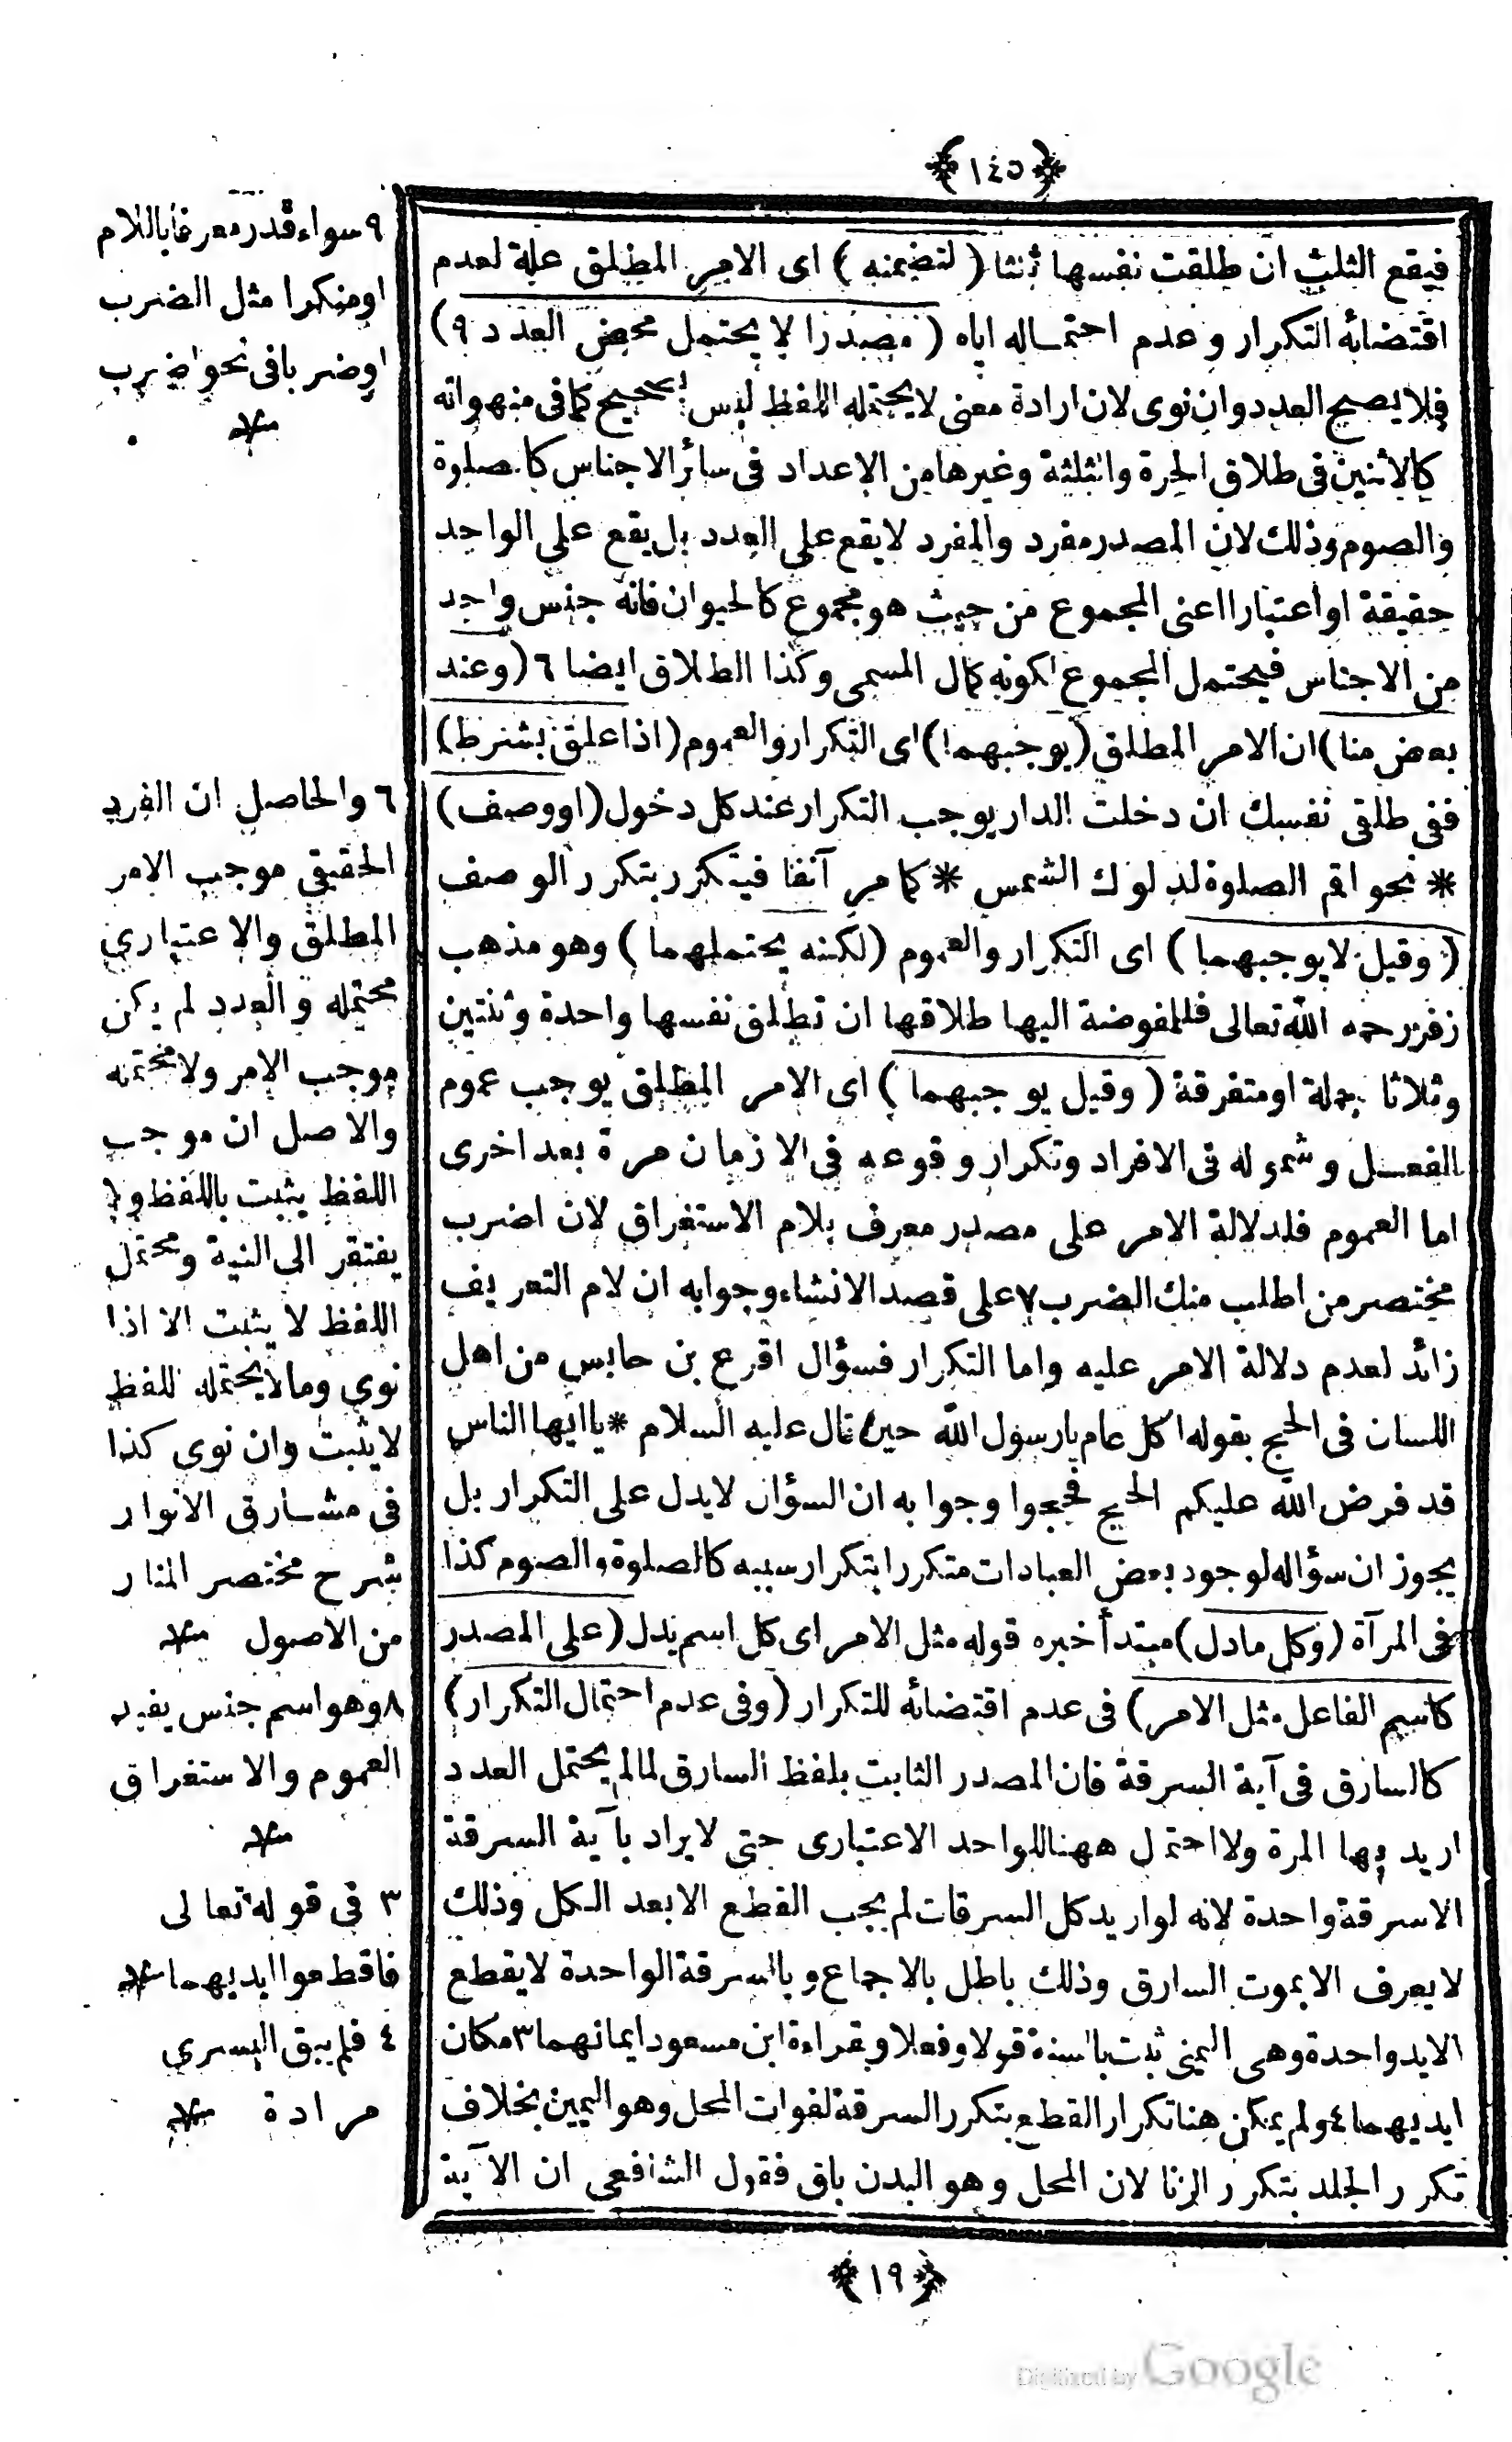 ﴿١٤٥﴾
فيقع الثلث ان طلقت نفسها ثلثا ( لتضمنه ) اى الامر المطلق علة لعدم
اقتضائه التكرار وعدم احتماله اياه ( مصدرا لا يحتمل محض العدد ٩ )
فلا يصح العدد وان نوى لان ارادة معنى لا يحتمله اللفظ ليس بصحيح كما فى
كالاثنين فى طلاق الحرة والثلثة وغيرها من الاعداد فى سائر الاجناس كالصلوة
والصوم وذلك لان المصدر مفرد والمفرد لا يقع على العدد بل يقع على الواحد
حقيقة او اعتبارا اعنى المجموع من حيث هو مجموع كالحيوان فانه جنس واحد
من الاجناس فيحتمل المجموع لكونه كمال المسمى وكذا الطلاق ايضا ٦ ( وعند
بعض منا ) ان الامر المطلق ( يوجبهما ) اى التكرار والعموم ( اذا علق بشرط )
ففى طلقى نفسك ان دخلت الدار يوجب التكرار عند كل دخول ( او وصف )
* نحو اقم الصلوة لدلوك الشمس * كما مر آنفا فيتكرر بتكرر الوصف
( وقيل لا يوجبهما ) اى التكرار والعموم ( لكنه يحتملهما ) وهو مذهب
زفر رحمه الله تعالى فللمفوضة اليها طلاقها ان تطلق نفسها واحدة وثنتين
وثلاثا جملة او متفرقة ( وقيل يوجبهما ) اى الامر المطلق يوجب عموم
الفعل وشموله فى الافراد وتكرار وقوعه فى الازمان مرة بعد اخرى
اما العموم فلدلالة الامر على مصدر معرف بلام الاستغراق لان اضرب
مختصر من اطلب منك الضرب ٧ على قصد الانشاء وجوابه ان لام التعريف
زائد لعدم دلالة الامر عليه واما التكرار فسؤال اقرع بن حابس من اهل
اللسان فى الحج بقوله اكل عام يا رسول الله حين قال عليه السلام * يا ايها الناس
قد فرض الله عليكم الحج فحجوا وجوابه ان السؤال لا يدل على التكرار بل
يجوز ان سؤاله لوجود بعض العبادات متكررا بتكرار سببه كالصلوة والصوم كذا
فى المرآة ( وكل مادل ) مبتدأ خبره قوله مثل الامر اى كل اسم يدل ( على المصدر
كاسم الفاعل مثل الامر ) فى عدم اقتضائه للتكرار ( وفى عدم احتمال التكرار )
كالسارق فى آية السرقة فان المصدر الثابت بلفظ السارق لما لم يحتمل العدد
اريد بها المرة ولا احتمل ههنا للواحد الاعتبارى حتى لا يراد بآية السرقة
الا سرقة واحدة لانه لو اريد كل السرقات لم يجب القطع الا بعد الكل وذلك
لا يعرف الا بموت السارق وذلك باطل بالاجماع وبالسرقة الواحدة لا يقطع
الا يد واحدة وهى اليمنى ثبت بالسنة قولا وفعلا وبقراءة ابن مسعود ايمانهما ٣ مكان
ايديهما ٤ ولم يمكن هنا تكرار القطع بتكرر السرقة لفوات المحل وهو اليمين بخلاف
تكرر الجلد بتكرر الزنا لان المحل وهو البدن باق فقول الشافعى ان الآية
﴿١٩﴾
٩ سواء قدر معرفا باللام
او منكرا مثل الضرب
او ضربا فى نحو اضرب
منه
٦ والحاصل ان الفرد
الحقيقى موجب الامر
المطلق والاعتبارى
محتمله والعدد لم يكن
موجب الامر ولا محتمله
والاصل ان موجب
اللفظ يثبت باللفظ ولا
يفتقر الى النية ومحتمل
اللفظ لا يثبت الا اذا
نوى وما لا يحتمله اللفظ
لا يثبت وان نوى كذا
فى مشارق الانوار
شرح مختصر المنار
من الاصول منه
٨ وهو اسم جنس يفيد
العموم والاستغراق
منه
٣ فى قوله تعالى
فاقطعوا ايديهما منه
٤ فلم يبق اليسرى
مرادة منه
Digitized by Google